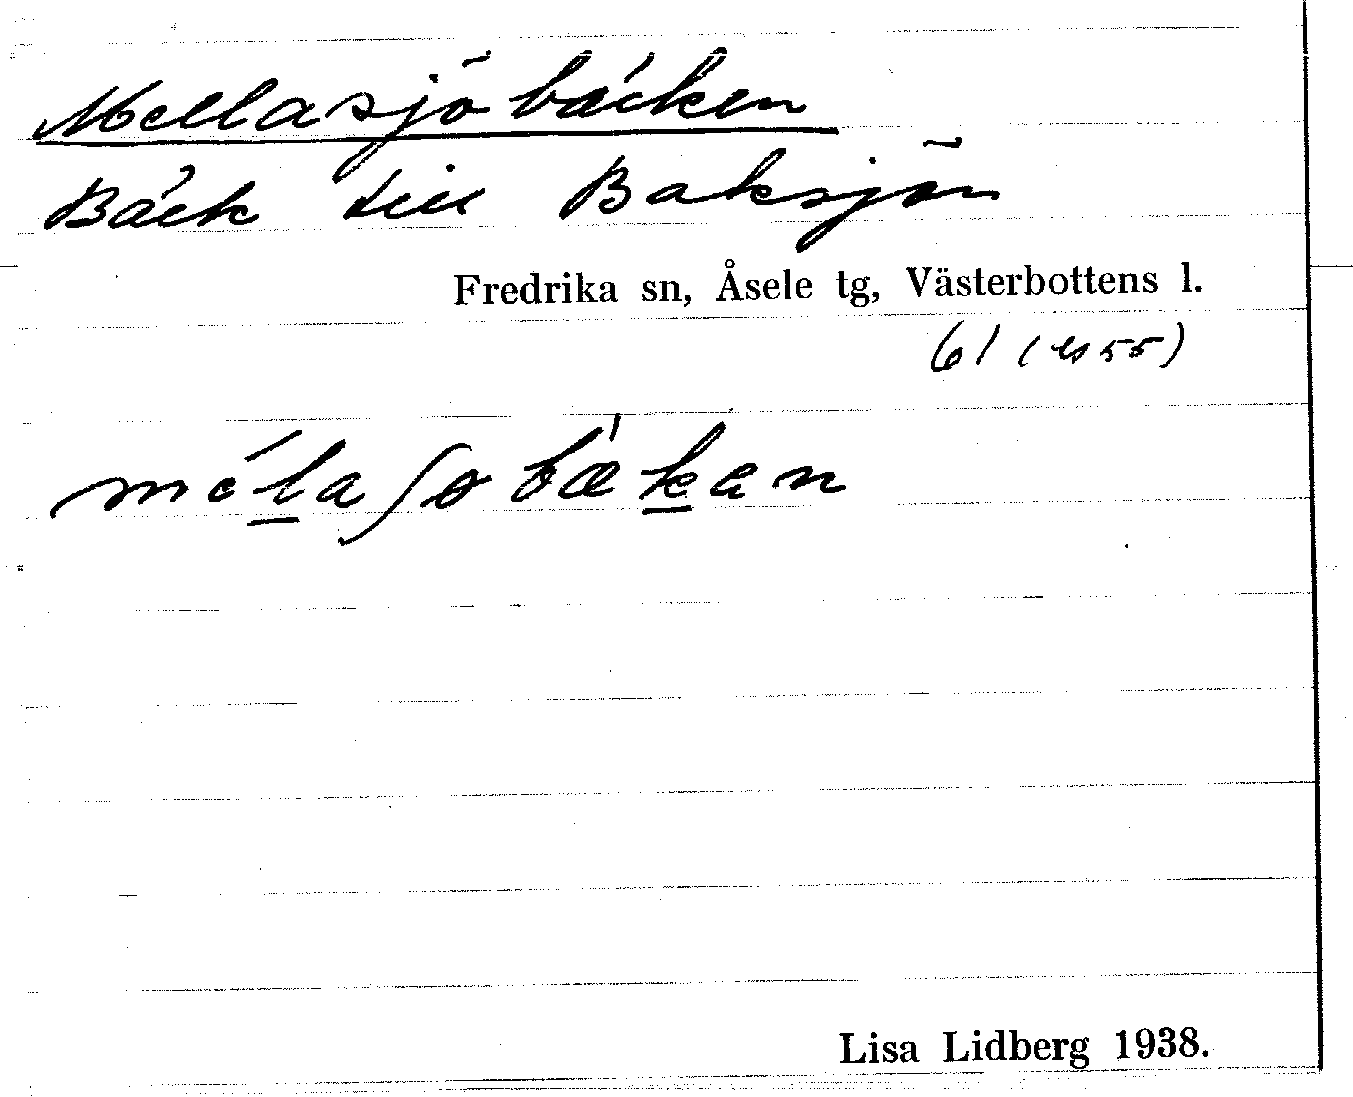 Mellasjöbäcken
Bäck till Baksjön
Fredrika sn, Åsele tg, Västerbottens l.
61
Lisa Lidberg 1938.